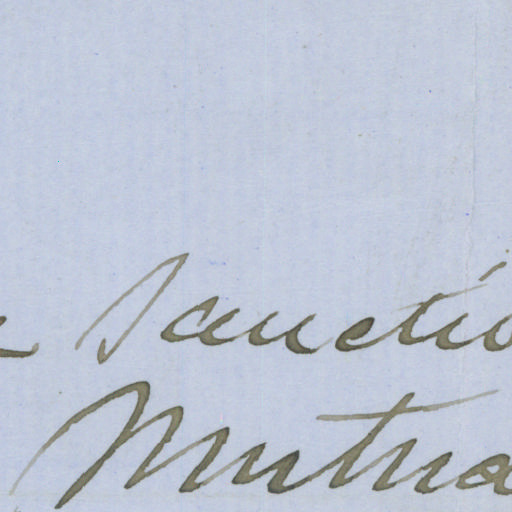 sanctio
Mutua